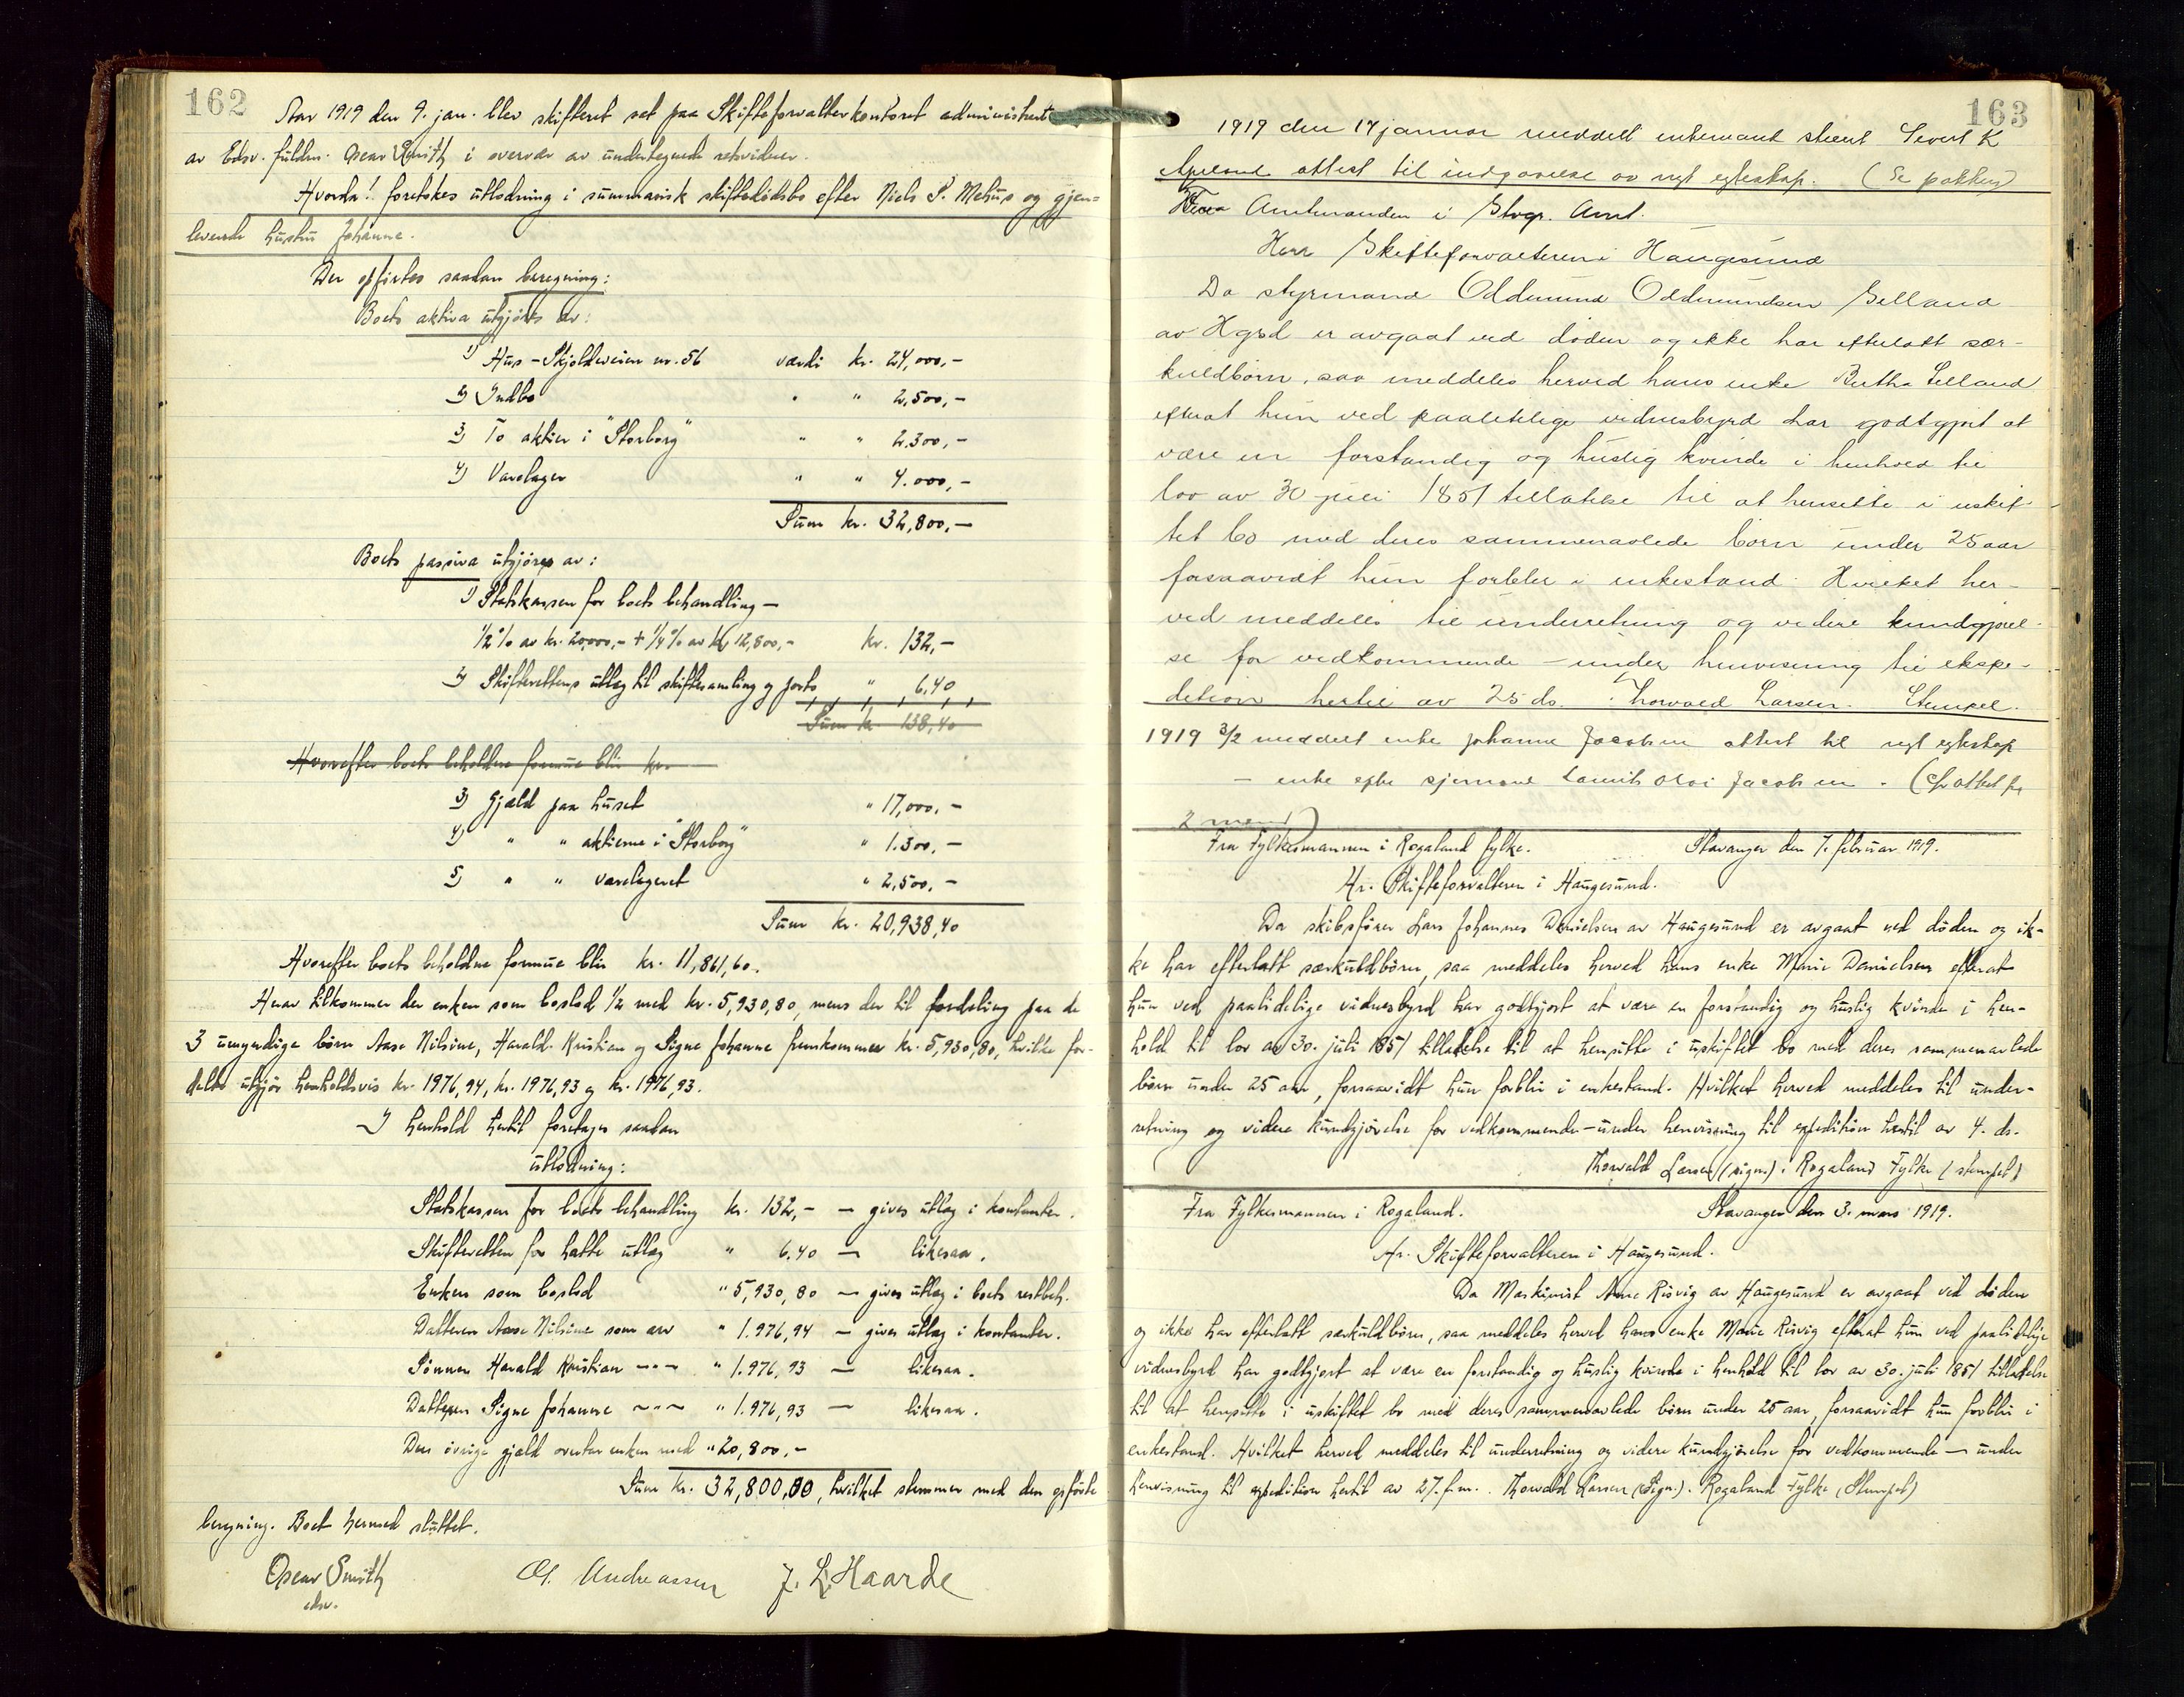 162
Aar 1919 den 9. jan. blev skifteret sat paa Skifteforvalterkontoret administrert
av Edsv. fuldm. Oscar Smith i overvær av undertegnede retsvidner.
Hvorda! foretokes utlodning i summarisk skiftedødsbo efter Niels S. Mehus og gjen-
levende hustru Johanne.
Der opførtes saadan beregning:
Boets aktiva utgjøres av:
1) Hus - Skjoldaveien nr. 56 værdi kr. 24,000,-
2) Indbo " " 2,500,-
3) To aktier i "Storborg" " " 2.300,-
4) Varelager " " 4.000,-
Sum kr. 32,800,-
Boets passiva utgjøres av:
1) Statskassen for boets behandling -
1/2 % av kr. 20,000,- + 1/4 % av kr 12,800,- kr. 132,-
2) Skifterettens utlæg til skiftesamling og porto " 6,40
Sum kr. 138,40
Hvorefter boets beholdne formue blir kr.
3) Gjæld paa huset " 17,000,-
4) " " aktierne i "Storborg" " 1.300,-
5) " " varelageret " 2,500,-
Sum kr. 20,938,40
Hvorefter boets beholdne formue blir kr. 11,861,60.
Herav tilkommer der enken som boslod 1/2 med kr. 5,930,80, mens der til fordeling paa de
3 umyndige børn Aase Nilsine, Harald Kristian og Signe Johanne fremkommer kr. 5,930,80, hvilke for-
delt utgjør henholdsvis kr. 1976,94, kr. 1976,93 og kr. 1976,93.
I henhold hertil foretages saadan
utlodning:
Statskassen for boets behandling kr. 132,- - gives utlæg i kontanter.
Skifteretten for hatte utlæg " 6,40 - likesaa.
Enken som boslod " 5,930,80 - gives utlæg i boets restbeh.
Datteren Aase Nilsine som arv " 1.976,94 - gives utlæg i kontanter.
Sønnen Harald Kristian -"- " 1.976,93 - likesaa.
Datteren Signe Johanne -"- " 1.976,93 - likesaa.
Den øvrige gjæld overtar enken med " 20,800,-
Sum kr. 32,800,00, hvilket stemmer med den opførte
beregning. Boet hermed sluttet.
Oscar Smith Andreassen J. L. Haarde
edsv.
163
1919 den 17 januar meddelt enkemand Sivert K
attest til indgaaelse av nyt egteskap. (Se pakken)
Fra Amtmanden i Stvgr. Amt.
Herr Skifteforvalteren i Haugesund
Da styrmand Oddmund Oddmundsen Selland
av Hgsd er avgaat ved døden og ikke har efterlatt sær-
kuldbørn, saa meddeles herved hans enke Bertha Selland
efterat hun ved paalitelige vidnesbyrd har godtgjort at
være en forstandig og huslig kvinde i henhold til
lov av 30 juli 1851 tillatelse til at hensitte i uskif-
tet bo med deres sammenavlede børn under 25 aar
forsaavidt hun forbler i enkestand. Hvilket her-
ved meddeles til underretning og videre kundgjørel-
se for vedkommende - under henvisning til ekspe-
dition hertil av 25 ds. Thorvald Larsen. Stempel.
1919 3/2 meddelt enke Johanne Jacobsen attest til nyt egteskap
- enke efter sjømand Jacobsen. (
2 mænd)
Fra Fylkesmannen i Rogaland fylke. Stavanger den 7. februar 1919.
Hr. Skifteforvalteren i Haugesund.
Da skibsfører Lars Johannes Danielsen av Haugesund er avgaat ved døden og ik-
ke har efterlatt særkuldbørn, saa meddeles herved hans enke Marie Danielsen efterat
hun ved paalidelige vidnesbyrd har godtgjort at være en forstandig og huslig kvinde i hen-
hold til lov av 30. juli 1851 tilladelse til at hensitte i uskiftet bo med deres sammenavlede
børn under 25 aar, forsaavidt hun forblir i enkestand. Hvilket herved meddeles til under-
retning og videre kundgjørelse for vedkommende - under henvisning til expedition hertil av 4. ds.
Thorvald Larsen (sign.). Rogaland Fylke (stempel)
Fra Fylkesmannen i Rogaland. Stavanger den 3. mars 1919.
Hr. Skifteforvalteren i Haugesund.
Da Maskinist Arne Risvig av Haugesund er avgaat ved døden
og ikke har efterlatt særkuldbørn, saa meddeles herved hans enke Marie Risvig efterat hun ved paalidelige
vidnesbyrd har godtgjort at være en forstandig og huslig kvinde i henhold til lov av 30. juli 1851 tilladelse
til at hensitte i uskiftet bo med deres sammenavlede børn under 25 aar, forsaavidt hun forblir i
enkestand. Hvilket herved meddeles til underretning og videre kundgjørelse for vedkommende - under
henvisning til expedition hertil av 27. f.m. Thorvald Larsen (Sign.). Rogaland Fylke (Stempel)